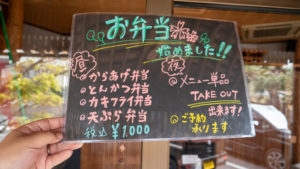 お弁当
始めました!!
昼
からあげ弁当
とんかつ弁当
カキフライ弁当
天ぷら弁当
税込 ¥1,000
夜
メニュー単品
TAKE OUT
出来ます!
ご予約
承ります